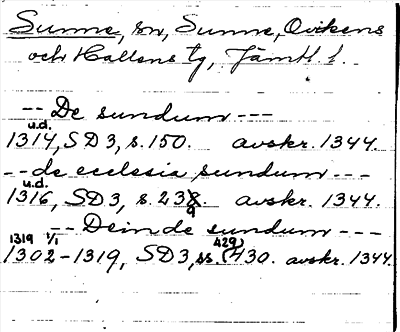 Sunne, sn, Sunne, Ovikens
och Hallens tg, Jämtl. l.
-- De sundum ---
u.d.
1314, SD 3, s. 150. avskr. 1344.
-- de ecclesia sundum ---
u.d.
1316, SD 3, s. 238. avskr. 1344.
9
-- Dein de sundum ---
1319 1/1 429)
1302-1319, SD 3, ss. (430. avskr. 1344.